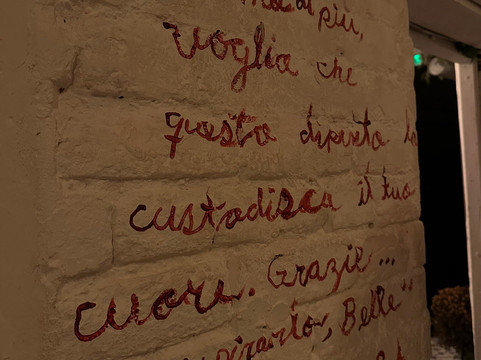 di più,
voglio che
questo dipinto lo
custodisca il tuo
cuore. Grazie...
Belle"